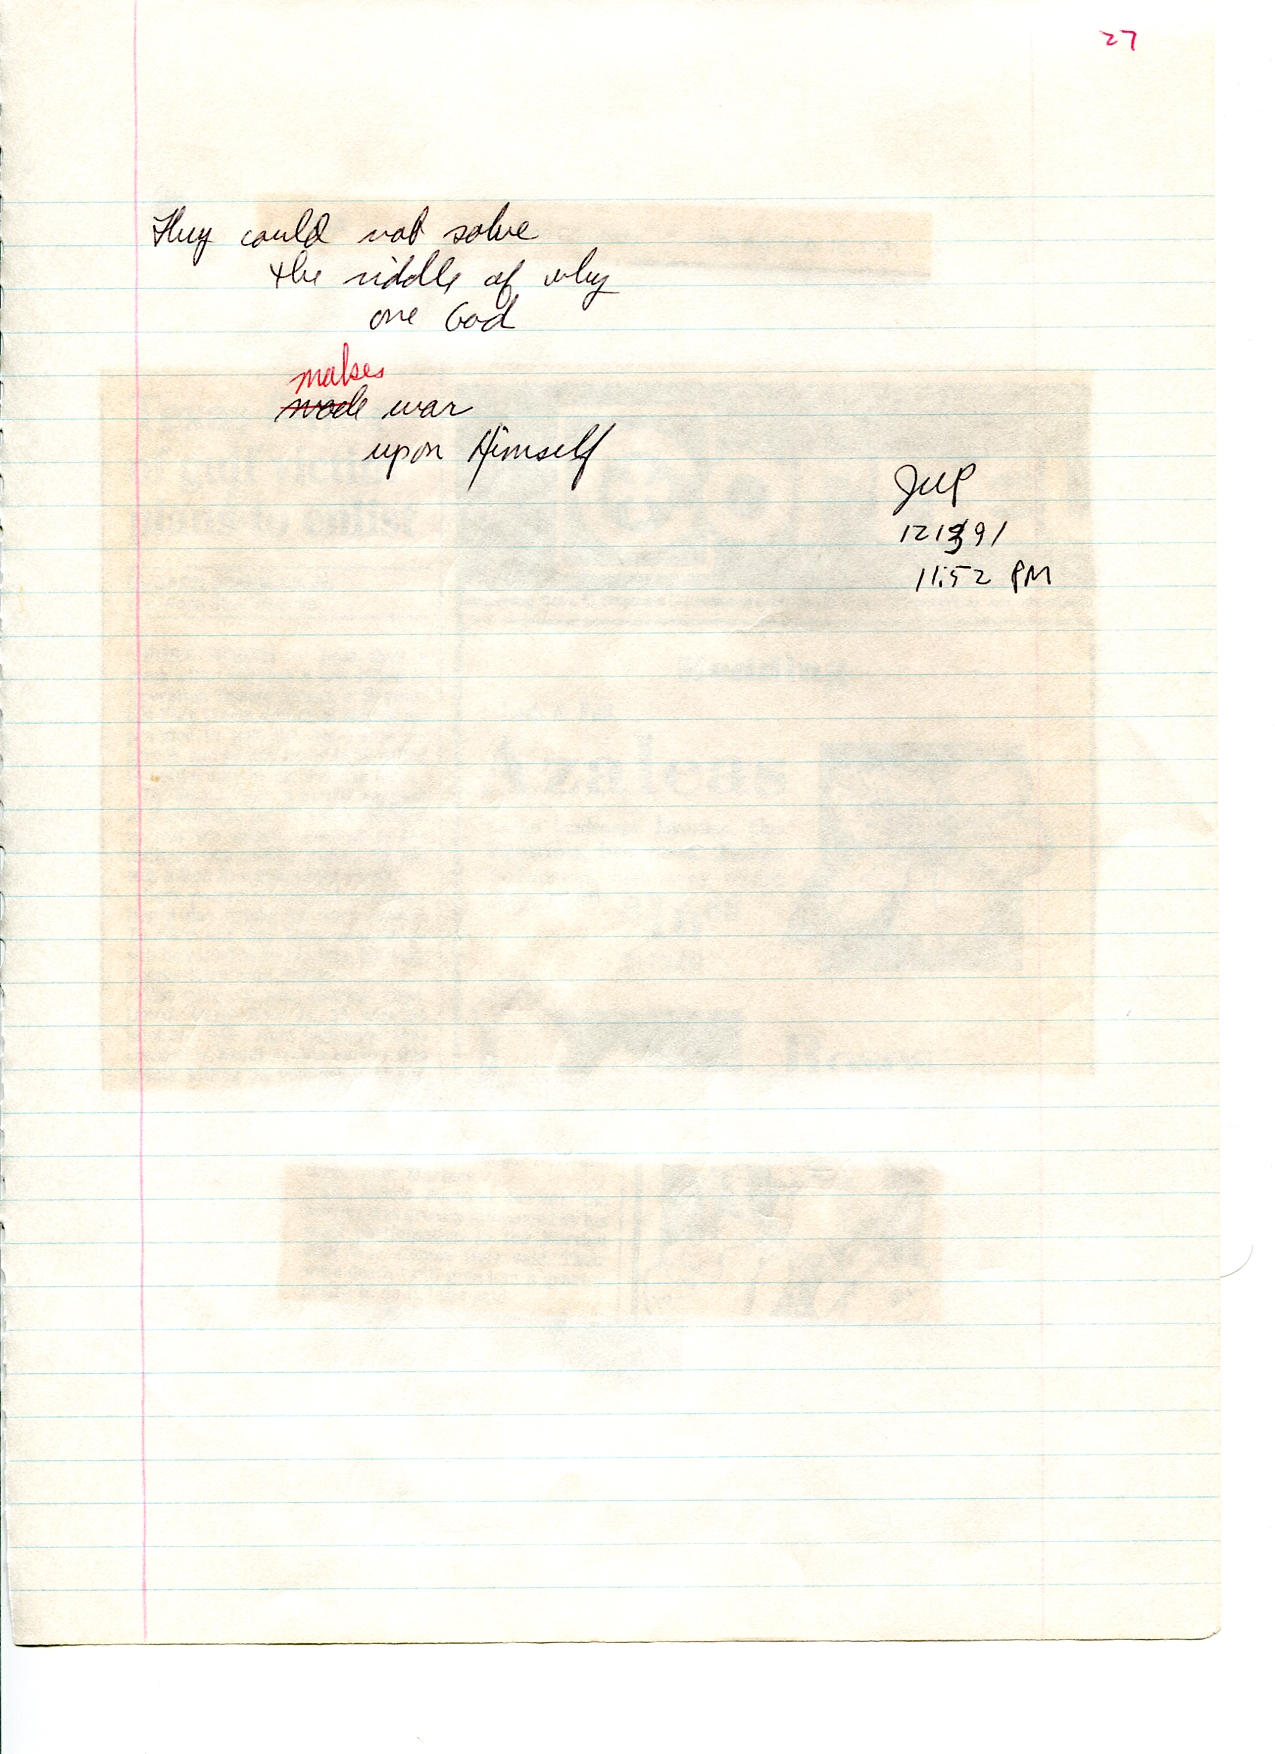 27
They could not solve
the riddle of why
one God
makes
made war
upon Himself
11:52 PM